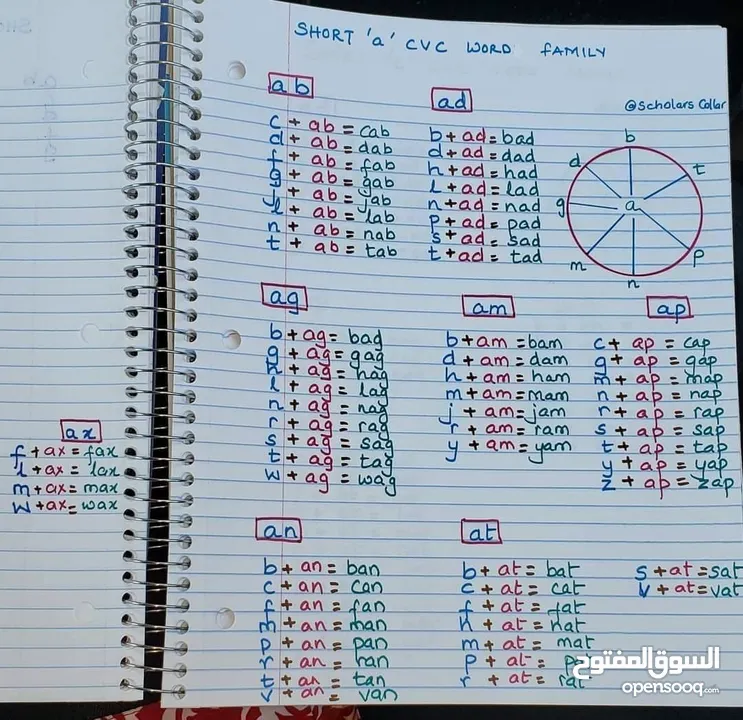 SHORT 'a' CVC WORD FAMILY
@Scholars Collar
ab
c + ab = cab
d + ab = dab
f + ab = fab
g + ab = gab
j + ab = jab
l + ab = lab
n + ab = nab
t + ab = tab
ad
b + ad = bad
d + ad = dad
h + ad = had
l + ad = lad
n + ad = nad
p + ad = pad
s + ad = sad
t + ad = tad
b
d
t
g
a
m
p
n
ag
b + ag = bag
g + ag = gag
h + ag = hag
l + ag = lag
n + ag = nag
r + ag = rag
s + ag = sag
t + ag = tag
w + ag = wag
am
b + am = bam
d + am = dam
h + am = ham
m + am = mam
j + am = jam
r + am = ram
y + am = yam
ap
c + ap = cap
g + ap = gap
m + ap = map
n + ap = nap
r + ap = rap
s + ap = sap
t + ap = tap
y + ap = yap
z + ap = zap
ax
f + ax = fax
l + ax = lax
m + ax = max
w + ax = wax
an
b + an = ban
c + an = can
f + an = fan
m + an = man
p + an = pan
r + an = ran
t + an = tan
v + an = van
at
b + at = bat
c + at = cat
f + at = fat
h + at = hat
m + at = mat
p + at =
r + at = rat
s + at = sat
v + at = vat
السوق المفتوح
opensooq.com